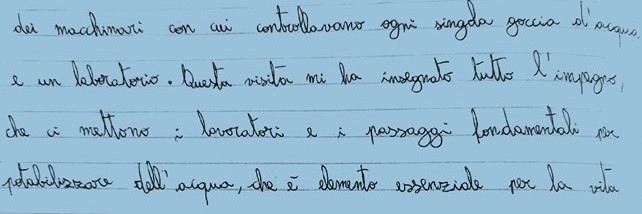 dei macchinari con cui controllavano ogni singola goccia d'acqua,
e un laboratorio. Questa visita mi ha insegnato tutto l'impegno,
che ci mettono i lavoratori e i passaggi fondamentali per
potabilizzare dell'acqua, che è elemento essenziale per la vita